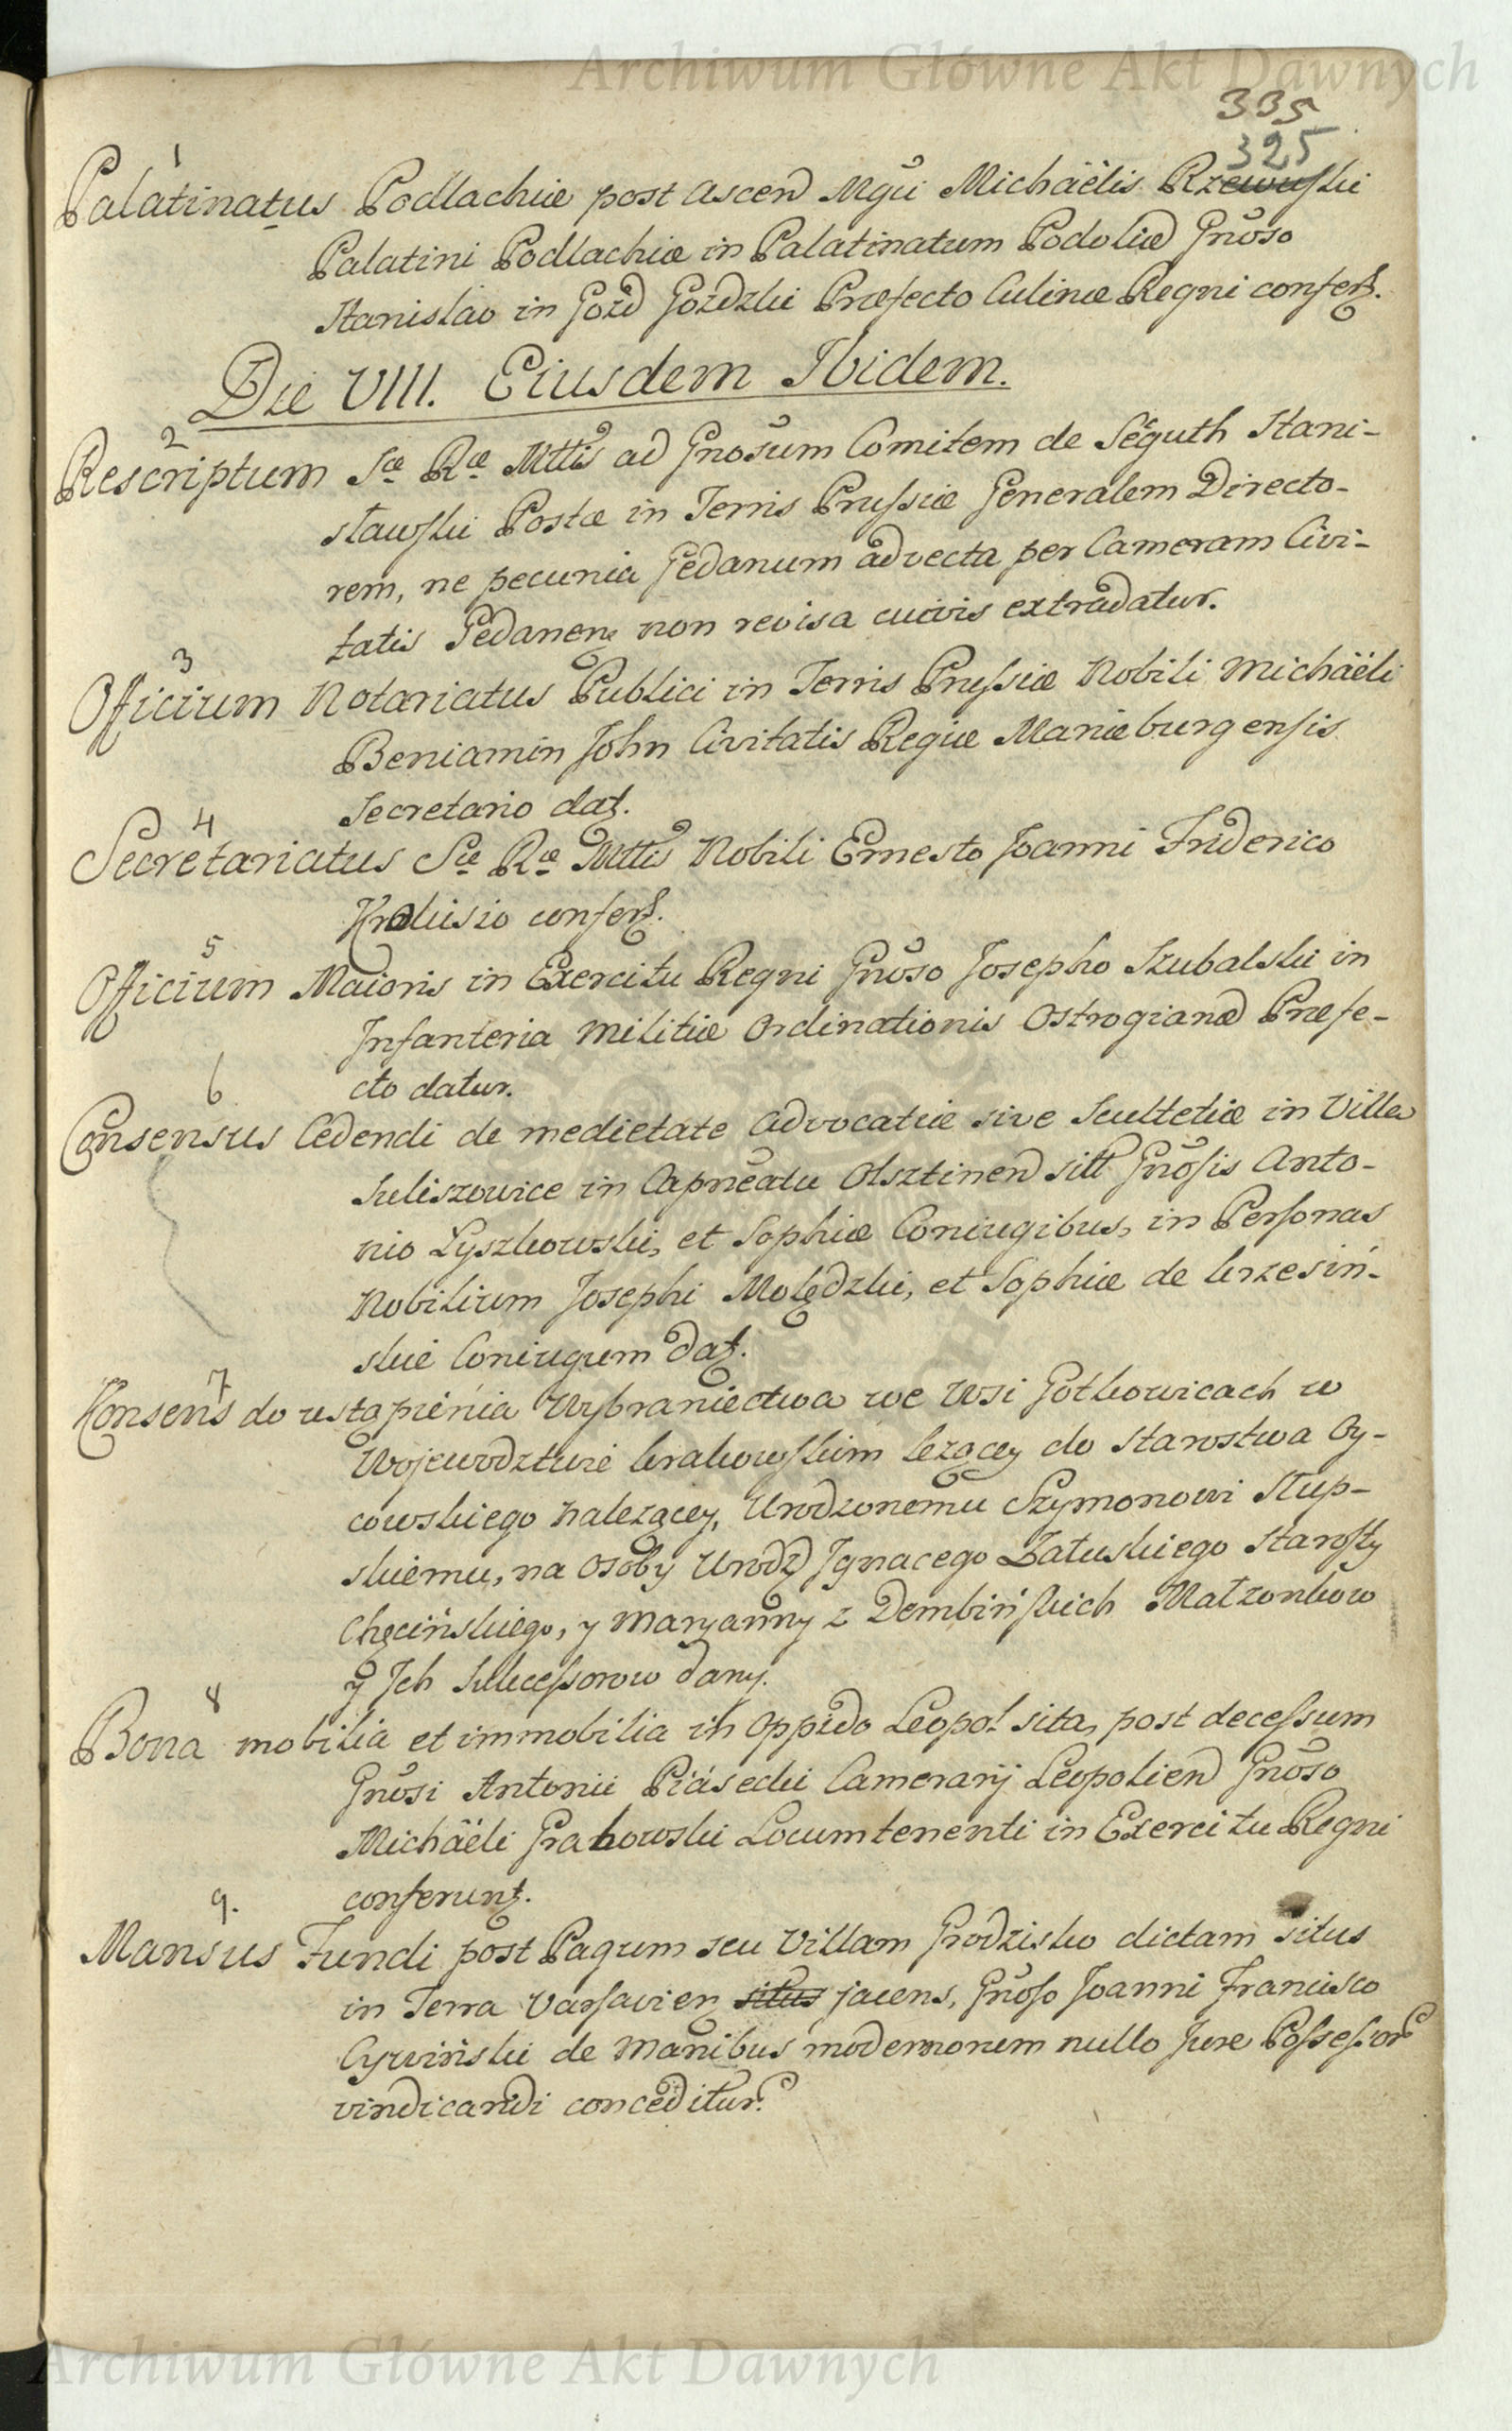 Archiwum Główne Akt Dawnych
335
325
1
Palatinatus Podlachiæ post ascen͠d Mg͠ci Michaëlis Rzewuski
Palatini Podlachiæ in Palatinatum Podoliæ Gn͠oso
Stanislao in Gozd Gozdzki Præfecto Culinæ Regni confert.
Die VIII. Eiusdem Ibidem.
2
Rescriptum Sæ Ræ Mttis ad Gnosum Comitem de Séguth Stani-
sławski Postæ in Terris Prussiæ Generalem Directo-
rem, ne pecunia Gedanum advecta per Cameram Civi-
tatis Gedanen non revisa cuivis extradatur.
3
Officium Notariatus Publici in Terris Prussiæ Nobili Michaëli
Beniamin John Civitatis Regiæ Mariæburgensis
Secretario dat.
4
Secretariatus Sæ Ræ Mttis Nobili Ernesto Joanni Friderico
Krolusio confert.
5
Officium Maioris in Exercitu Regni Gn͠oso Josepho Szubalski in
Infanteria Militiæ Ordinationis Ostrogianæ Præfe-
cto datur.
6
Consensus Cedendi de medietate Advocatiæ sive Scultetiæ in Villa
Suliszowice in Capn͠eatu Olsztinen sitt Gn͠osis Anto-
nio Lyszkowski, et Sophiæ Coniugibus, in Personas
Nobilium Josephi Molędzki, et Sophiæ de Krzesiń-
skie Coniugum dat.
7
Konsens do ustąpienia Wybraniectwa we Wsi Gotkowicach w
Wojewodztwie krakowskim lezącey do Starostwa Oy-
cowskiego nalezącey, Urodzonemu Szymonowi Słup-
skiemu, na Osoby Urodz Ignacego Załuskiego Starosty
Chęcińskiego, y Maryanny z Dembińskich Małzonkow
y Ich Sukcessorow dany.
8
Bona mobilia et immobilia in Oppido Leopol sita, post decessum
Gn͠osi Antonii Piásecki Camerarij Leopolien Gn͠oso
Michaëli Grabowski Locumtenenti in Exercitu Regni
conferunt.
9.
Mansus Fundi post Pagum seu Villam Grodzisko dictam situs
in Terra Varsavien situs jacens, Gn͠oso Joanni Francisco
Cywiński de Manibus modernorum nullo Jure Possessor
vindicandi conceditur.
Archiwum Główne Akt Dawnych